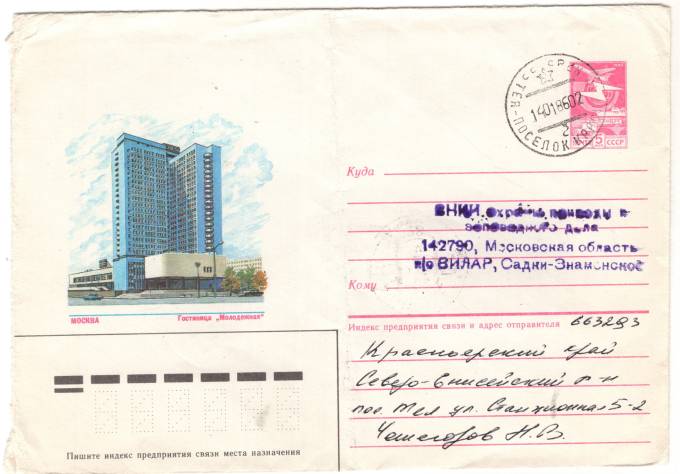 СССР ТЕЯ-ПОСЕЛОК КРАС
14018602
ПОЧТА 5 СССР
Куда
ВНИИ охраны природы и
заповедного дела
142790, Московская область
п/о ВИЛАР, Садки-Знаменское
Кому
МОСКВА
Гостиница „Молодежная"
Индекс предприятия связи и адрес отправителя 663293
Красноярский край
Северо-Енисейский р-н
пос. Тея ул. Станционная 5-2
Н.В.
Пишите индекс предприятия связи места назначения